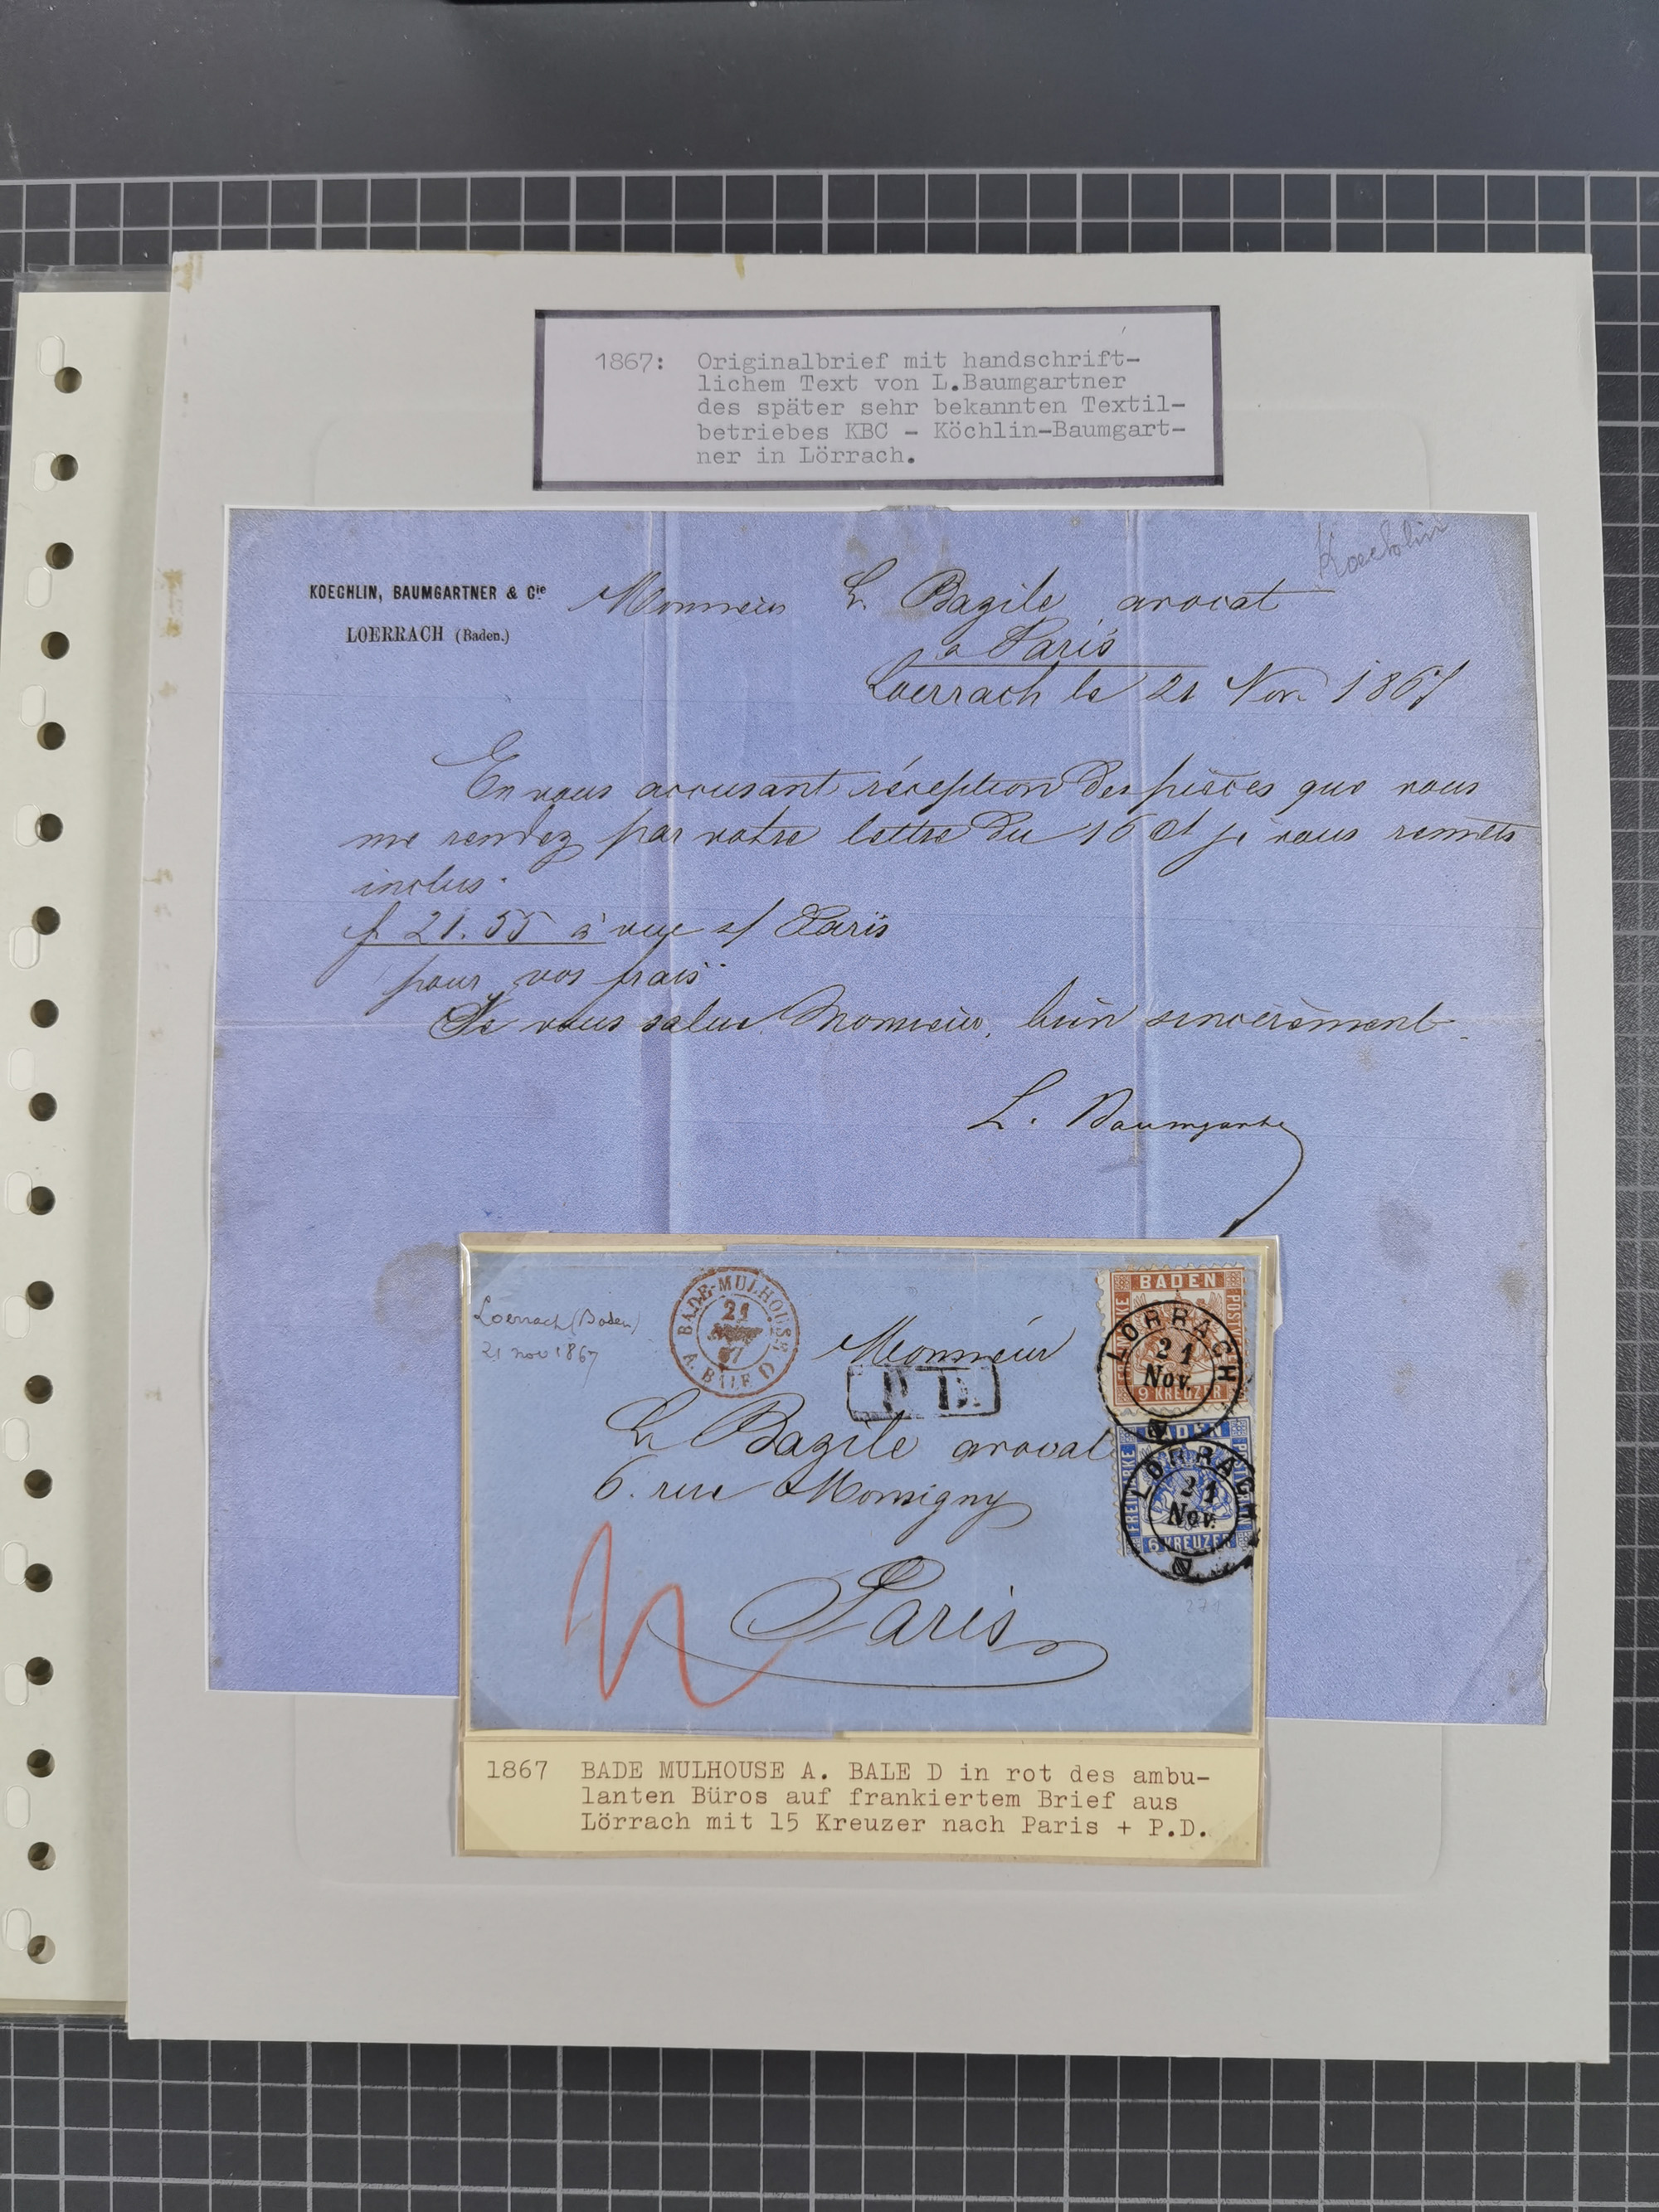 1867: Originalbrief mit handschrift-
lichem Text von L.Baumgartner
des später sehr bekannten Textil-
betriebes KBC - Köchlin-Baumgart-
ner in Lörrach.
Koechlin
KOECHLIN, BAUMGARTNER & Cie
LOERRACH (Baden.)
Monsieur L. Bazile avocat
a Paris
Loerrach le 21 Nov. 1867
En vous accusant réception des pièces que vous
me rendez par votre lettre du 16 Ct je vous remets
inclus.
f. 21.55 à vue s/ Paris
pour vos frais.
Je vous salue Monsieur, bien sincèrement.
L. Baumgartner
Loerrach (Baden)
21 nov 1867
BADE-MULHOUSE
21
67
A. BALE D
Monsieur
P.D.
L. Bazile avocat
6. rue Monsigny
Paris
BADEN
FREIMARKE
POSTVEREIN
9 KREUZER
LÖRRACH
21
Nov.
BADEN
FREIMARKE
POSTVEREIN
6 KREUZER
LÖRRACH
21
Nov.
1867 BADE MULHOUSE A. BALE D in rot des ambu-
lanten Büros auf frankiertem Brief aus
Lörrach mit 15 Kreuzer nach Paris + P.D.